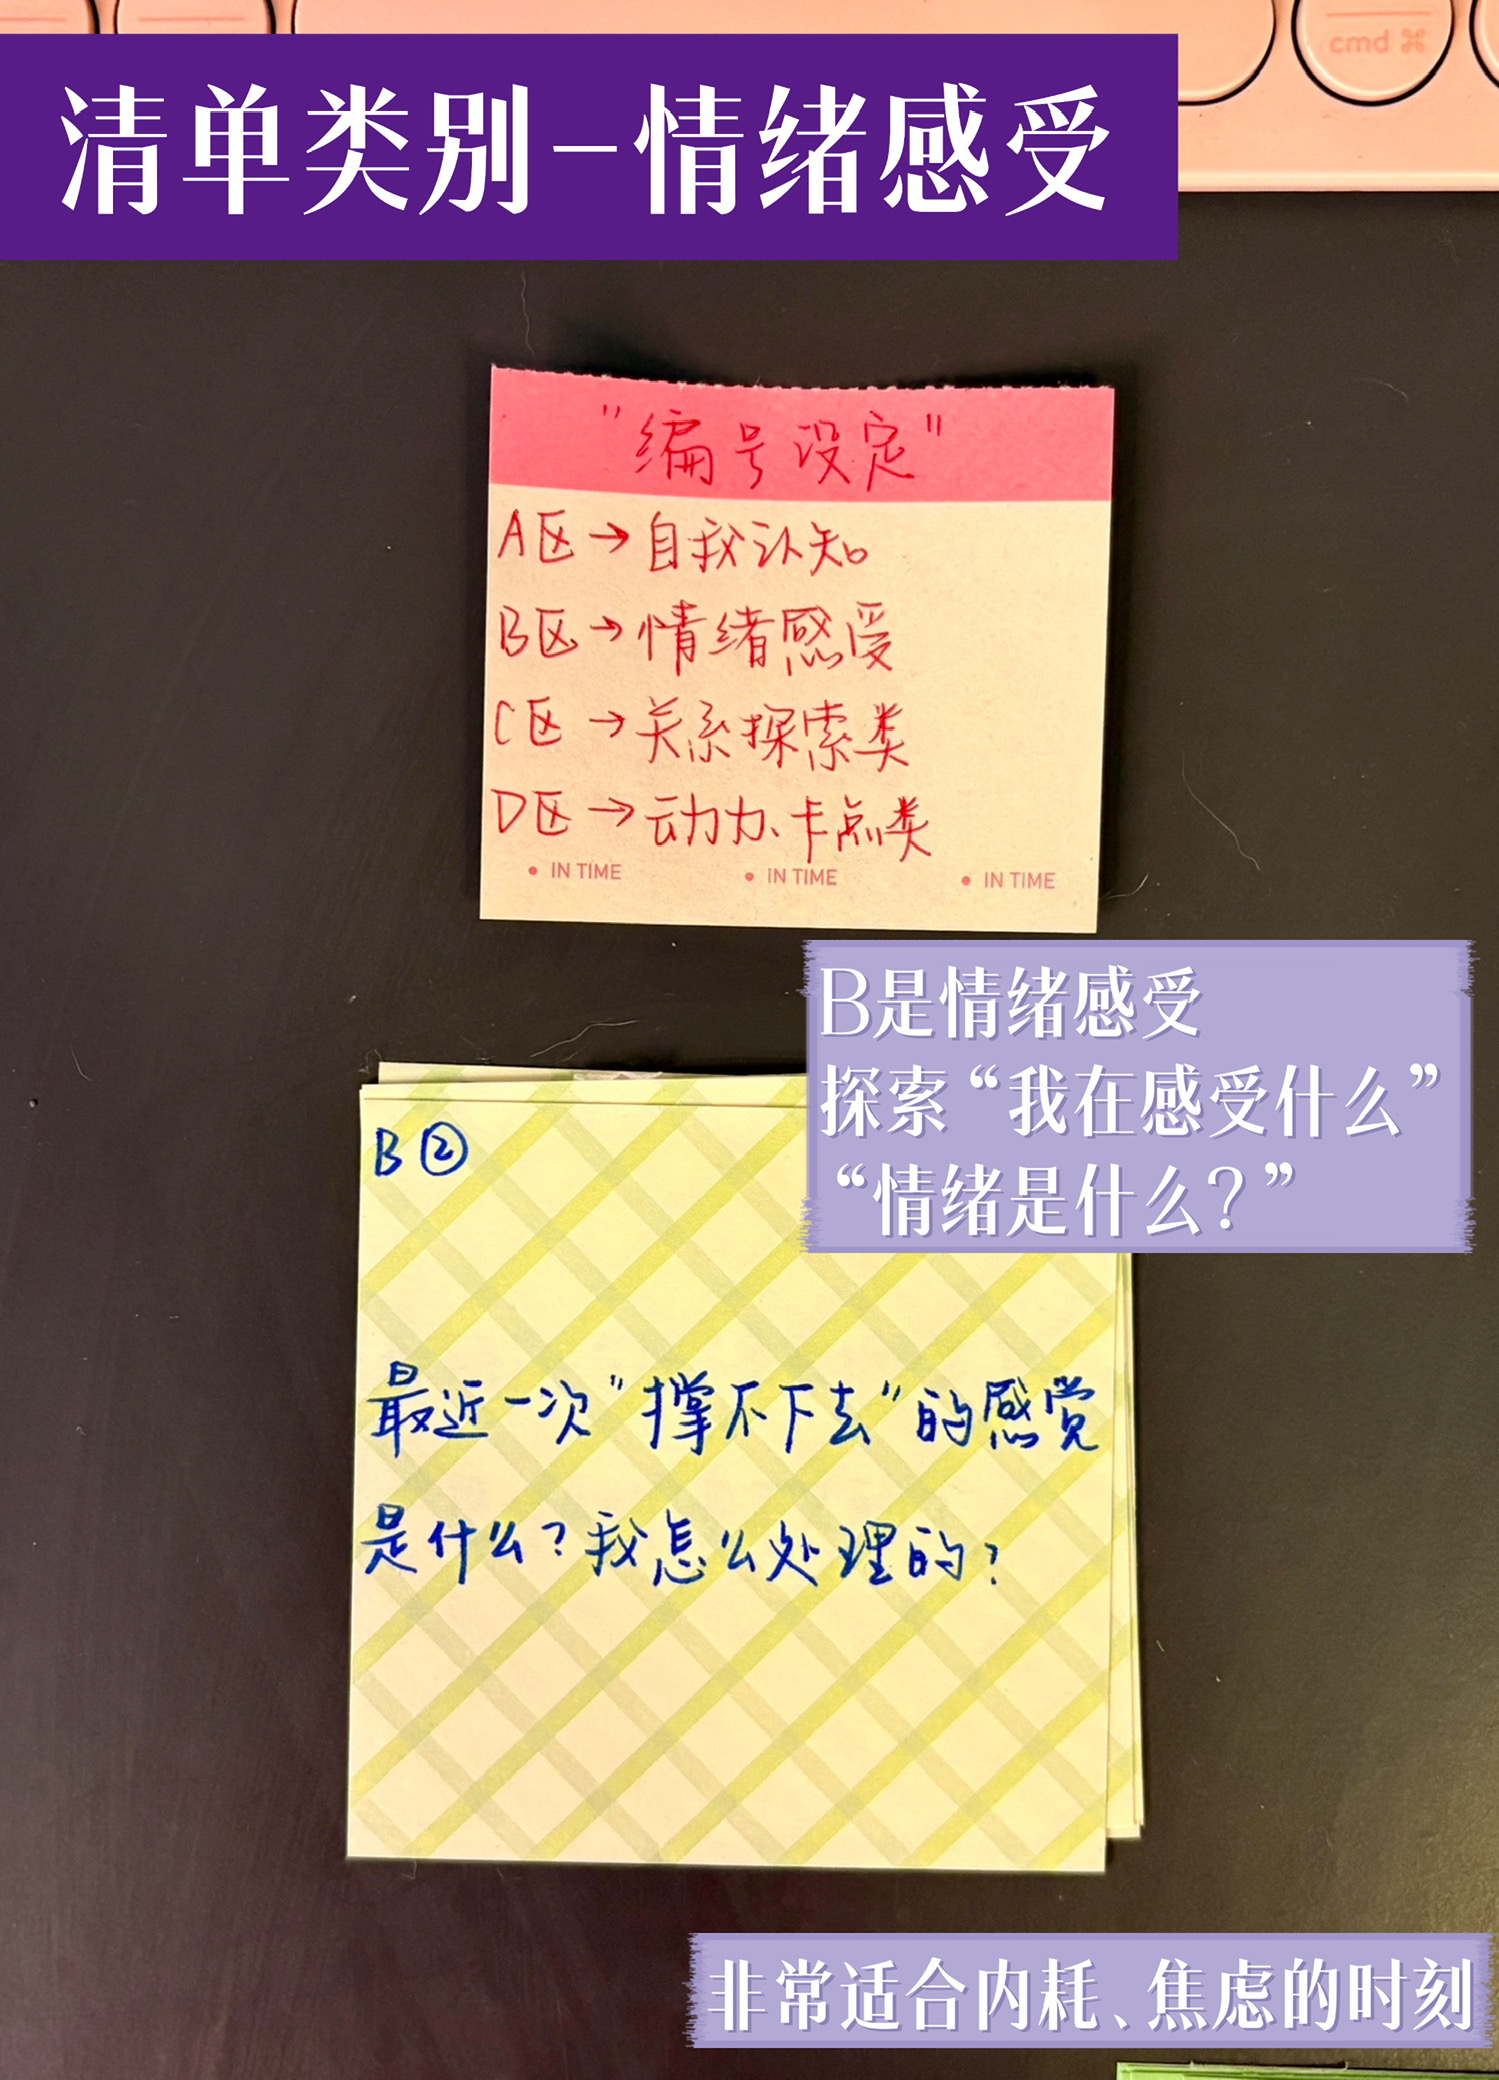 cmd ⌘
清单类别-情绪感受
"编号设定"
A区→自我认知
B区→情绪感受
C区→关系探索类
D区→动力、卡点类
IN TIME IN TIME IN TIME
B是情绪感受
探索“我在感受什么”
“情绪是什么？”
B②
最近一次"撑不下去"的感觉
是什么?我怎么处理的?
非常适合内耗、焦虑的时刻